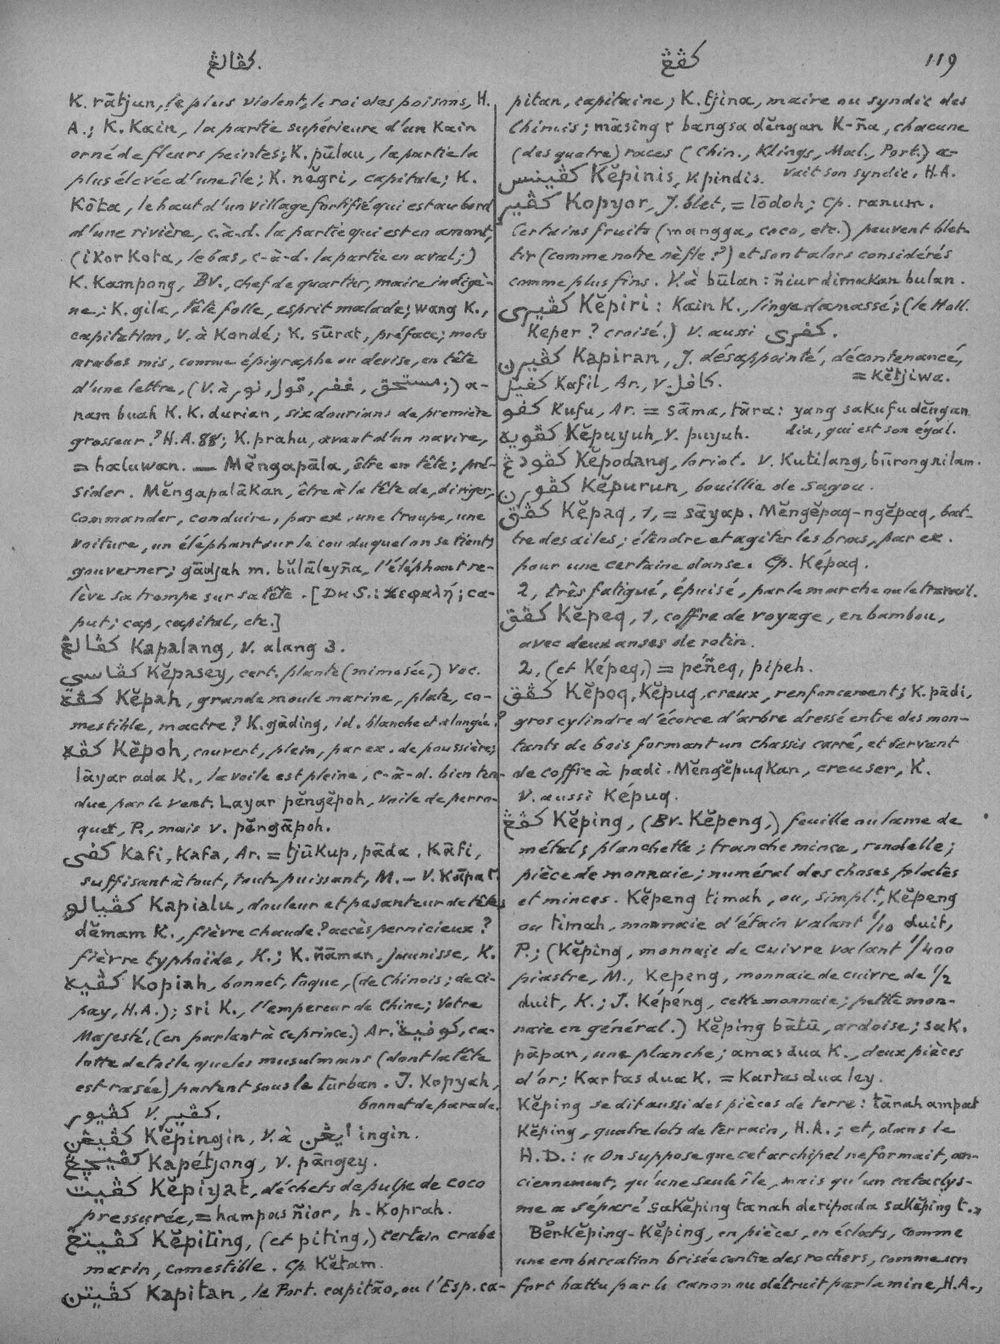 كڤالڠ.
كڤڠ
119
K. rātjun, le plus violent, le roi des poisons, H.
A.; K. Kain, la partie supérieure d'un Kain
orné de fleurs peintes; K. pūlau, la partie la
plus élevée d'une île; K. nĕgri, capitale; K.
Kōta, le haut d'un village fortifié qui est au bord
d'une rivière, c.à-d. la partie qui est en amont,
(iKor Kota, le bas, c-à-d. la partie en aval;)
K. Kampong, Bv., chef de quartier, maire indigè-
ne; K. gila, tête folle, esprit malade; wang K.,
capitation, V. à Kondé; K. sūrat, préface; mots
arabes mis, comme épigraphe ou devise, en tête
d'une lettre, (V. à نور, قول, غفر, مستحق;) a-
nam buah K. K. durian, six dourians de première
grosseur? H.A. 88; K. prahu, avant d'un navire,
= haluwan. — Mĕngapāla, être en tête; pré-
sider. MĕngapalāKan, être à la tête de, diriger,
commander, conduire, par ex. une troupe, une
voiture, un éléphant sur le cou duquel on se tient;
gouverner; gādjah m. bŭlāleyña, l'éléphant re-
lève sa trompe sur sa tête. [Du S.: κεφαλή; ca-
put; cap, capital, etc.]
كڤالڠ Kapalang, V. alang 3.
كڤاسي Kĕpasey, cert. plante (mimosée,) Voc.
كڤه Kĕpah, grande moule marine, plate, co-
mestible, mactre? K. gāding, id. blanche et alongée?
كڤه Kĕpoh, couvert, plein, par ex. de poussière;
lāyar ada K., la voile est pleine, c-à-d. bien ten-
due par le vent. Layar pĕngĕpoh, voile de perro-
quet, P., mais v. pĕngāpoh.
كفى Kafi, Kafa, Ar. = tjūKup, pāda. Kāfi,
suffisant à tout, tout puissant, M. — V. Kāpat
كڤيالو Kapialu, douleur et pesanteur de tête;
dĕmam K., fièvre chaude? accès pernicieux?
fièvre typhoïde, K.; K. ñāman, jaunisse, K.
كڤيه Kopiah, bonnet, toque, (de Chinois; de Ci-
pay, H.A.); sri K., l'empereur de Chine; Votre
Majesté, (en parlant à ce prince.) Ar. كوفية, ca-
lotte de toile que les musulmans (dont la tête
est rasée) portent sous le turban. J. Kopyah,
bonnet de parade.
كڤيور V. كڤير.
كڤيڠن Kĕpingin, V. à ايڠن ingin.
كڤيچڠ Kapétjong, V. pāngey.
كڤيت Kĕpiyat, déchets de pulpe de coco
pressurée, = hampas ñior, h. Koprah.
كڤيتڠ Kĕpiting, (et piting,) certain crabe
marin, comestible. Cp. Kĕtam.
كڤيتن Kapitan, le Port. capitāo, ou l'Esp. ca-
pitan, capitaine; K. tjina, maire ou syndic des
Chinois; māsing² bangsa dĕngan K-ña, chacune
(des quatre) races (Chin., Klings, Mal., Port.) a-
vait son syndic, H.A.
كڤينس Kĕpinis, V. pindis.
كڤير Kopyor, J. blet, = lōdoh; Cp. ranum.
Certains fruits (mangga, coco, etc.) peuvent blet-
tir (comme notre nèfle?) et sont alors considérés
comme plus fins. V. à būlan: ñiur dimakan bulan.
كڤيرى Kĕpiri: Kain K., linge damassé; (le Holl.
Keper? croisé.) V. aussi كفرى.
كڤيرن Kapiran, J. désappointé, décontenancé,
= Kĕtjiwa.
كفيل Kafil, Ar., V. كافل.
كفو Kufu, Ar. = sāma, tāra: yang sakufu dĕngan
dia, qui est son égal.
كڤويه Kĕpuyuh, V. puyuh.
كڤودڠ Kĕpodang, loriot. V. Kutilang, būrong nilam.
كڤورن Kĕpurun, bouillie de sagou.
كڤق Kĕpaq, 1, = sāyap. Mĕngĕpaq-ngĕpaq, bat-
tre des ailes; étendre et agiter les bras, par ex.
pour une certaine danse. Cp. Képaq.
2, très fatigué, épuisé, par le marche ou le travail.
كڤق Kĕpeq, 1, coffre de voyage, en bambou,
avec deux anses de rotin.
2, (et Képeq,) = péñeq, pipeh.
كڤق Kĕpoq, Kĕpuq, creux, renfoncement; K. pādi,
gros cylindre d'écorce d'arbre dressé entre des mon-
tants de bois formant un chassis carré, et servant
de coffre à padi. MĕngĕpuqKan, creuser, K.
V. aussi Képuq.
كڤڠ Kĕping, (Bv. Kĕpeng,) feuille ou lame de
métal; planchette; tranche mince, rondelle;
pièce de monnaie; numéral des choses plates
et minces. Kĕping timah, ou, simplt, Kĕpeng
ou timah, monnaie d'étain valant 1/10 duit,
P.; (Kĕping, monnaie de cuivre valant 1/400
piastre, M., Kepeng, monnaie de cuivre de 1/2
duit, K.; J. Képéng, cette monnaie; petite mon-
naie en général.) Kĕping bātū, ardoise; sa K.
pāpan, une planche; amas dua K., deux pièces
d'or; Kartas dua K. = Kartas dua ley.
Kĕping se dit aussi des pièces de terre: tānah ampat
Kĕping, quatre lots de terrain, H.A.; et, dans le
H.D.: « On suppose que cet archipel ne formait, an-
ciennement, qu'une seule île, mais qu'un cataclys-
me a séparé saKĕping tanah deripada saKĕping t. »
BĕrKĕping-Kĕping, en pièces, en éclats, comme
une embarcation brisée contre des rochers, comme un
fort battu par le canon ou détruit par la mine, H.A.,